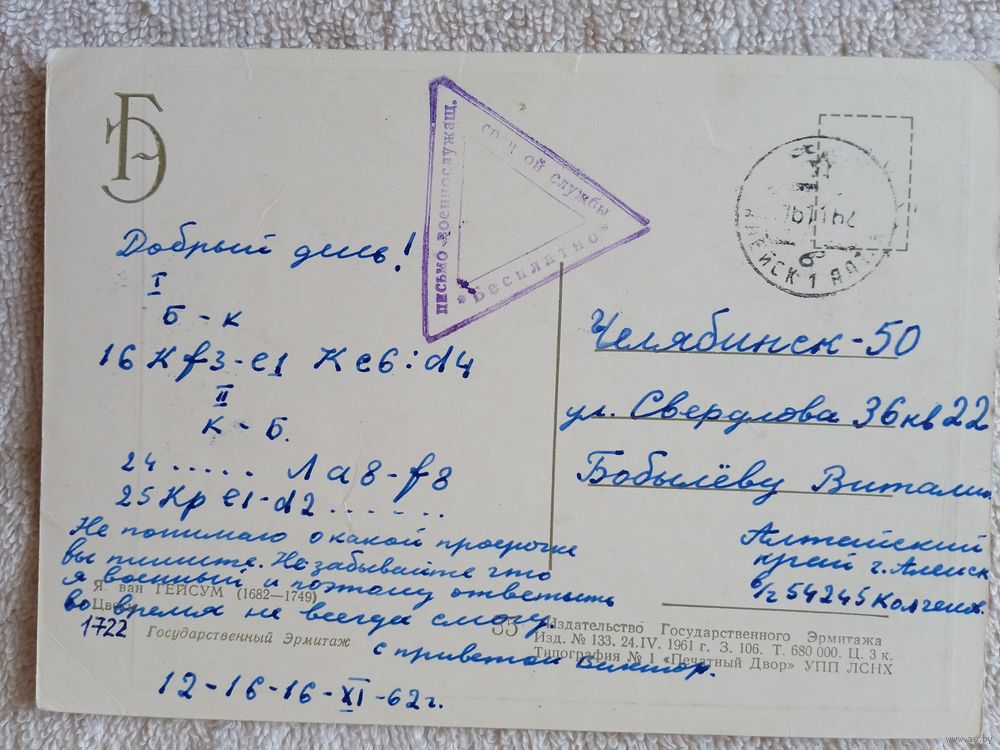 БЭ
письмо военнослужащ.
срочной службы
* Бесплатно *
АЛЕЙСК 1
6
Добрый день!
I
Б - К
16 Кf3-е1 Кс6:d4
II
К - Б.
24 ..... Ла8-f8
25 Кр е1-d2 ......
Не понимаю о какой просрочке
вы пишите. Не забывайте что
я военный и поэтому ответить
во время не всегда смогу.
с приветом Виктор.
12-16-16-XI-62 г.
Я ван ГЕЙСУМ (1682—1749)
Цветы
1722
Государственный Эрмитаж
Челябинск-50
ул. Свердлова 36 кв 22
Бобылёву Виталию
Алтайский
край г. Алейск
в/ч 54245
Издательство Государственного Эрмитажа
Изд. № 133. 24.IV. 1961 г. З. 106. Т. 680 000. Ц. 3 к.
Типография № 1 «Печатный Двор» УПП ЛСНХ
www.ay.by